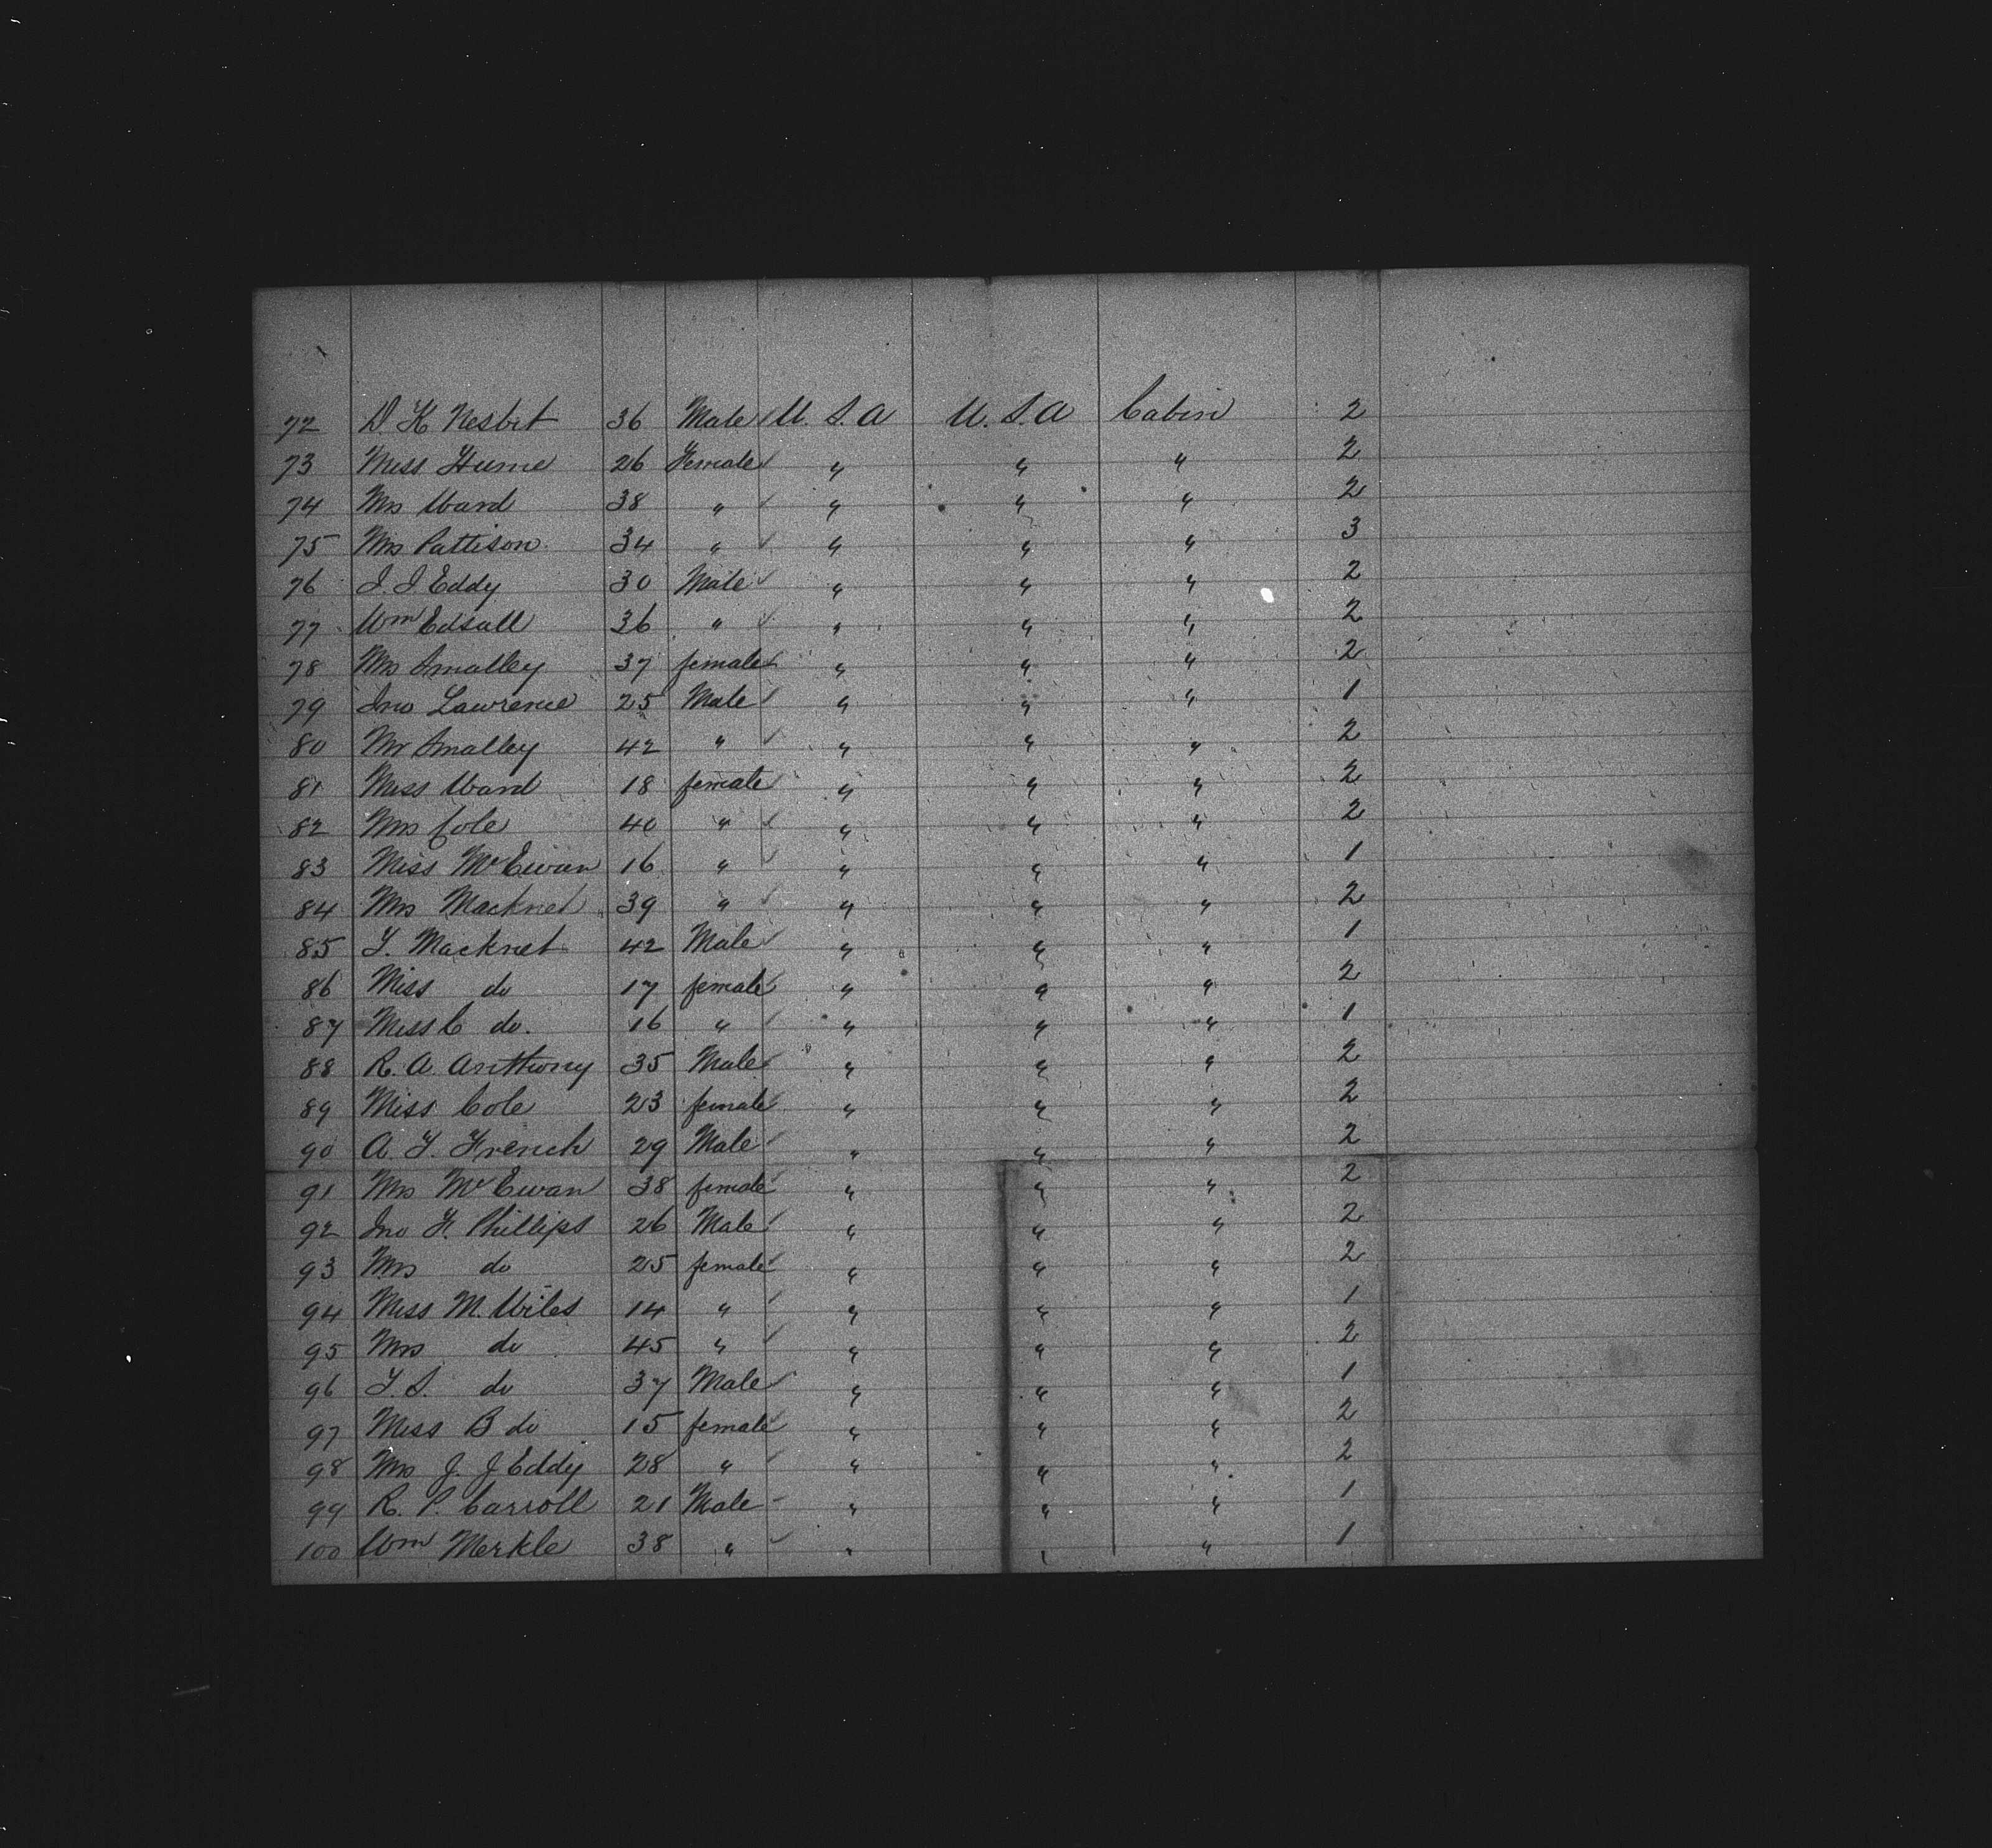 72 D. K Nesbit 36 Male U. S. A U. S. A Cabin 2
73 Miss Hume 26 Female " " " 2
74 Mrs Ward 38 " " " " 2
75 Mrs Pattison 34 " " " " 3
76 J. J Eddy 30 Male " " " 2
77 Wm Edsall 36 " " " " 2
78 Mrs Smalley 37 female " " " 2
79 Jno Lawrence 25 Male " " " 1
80 Mr Smalley 42 " " " " 2
81 Miss Ward 18 female " " " 2
82 Mrs Cole 40 " " " " 2
83 Miss McEwan 16 " " " " 1
84 Mrs Macknet 39 " " " " 2
85 T. Macknet 42 Male " " " 1
86 Miss do 17 female " " " 2
87 Miss C do. 16 " " " " 1
88 R. A. Anthony 35 Male " " " 2
89 Miss Cole 23 female " " " 2
90 A. T. French 29 Male " " " 2
91 Mrs McEwan 38 female " " " 2
92 Jno F. Phillips 26 Male " " " 2
93 Mrs do 25 female " " " 2
94 Miss M. Wiles 14 " " " " 1
95 Mrs do 45 " " " " 2
96 T. S. do 37 Male " " " 1
97 Miss B do 15 female " " " 2
98 Mrs J. J Eddy 28 " " " " 2
99 R. P. Carroll 21 Male " " " 1
100 Wm Merkle 38 " " " " 1